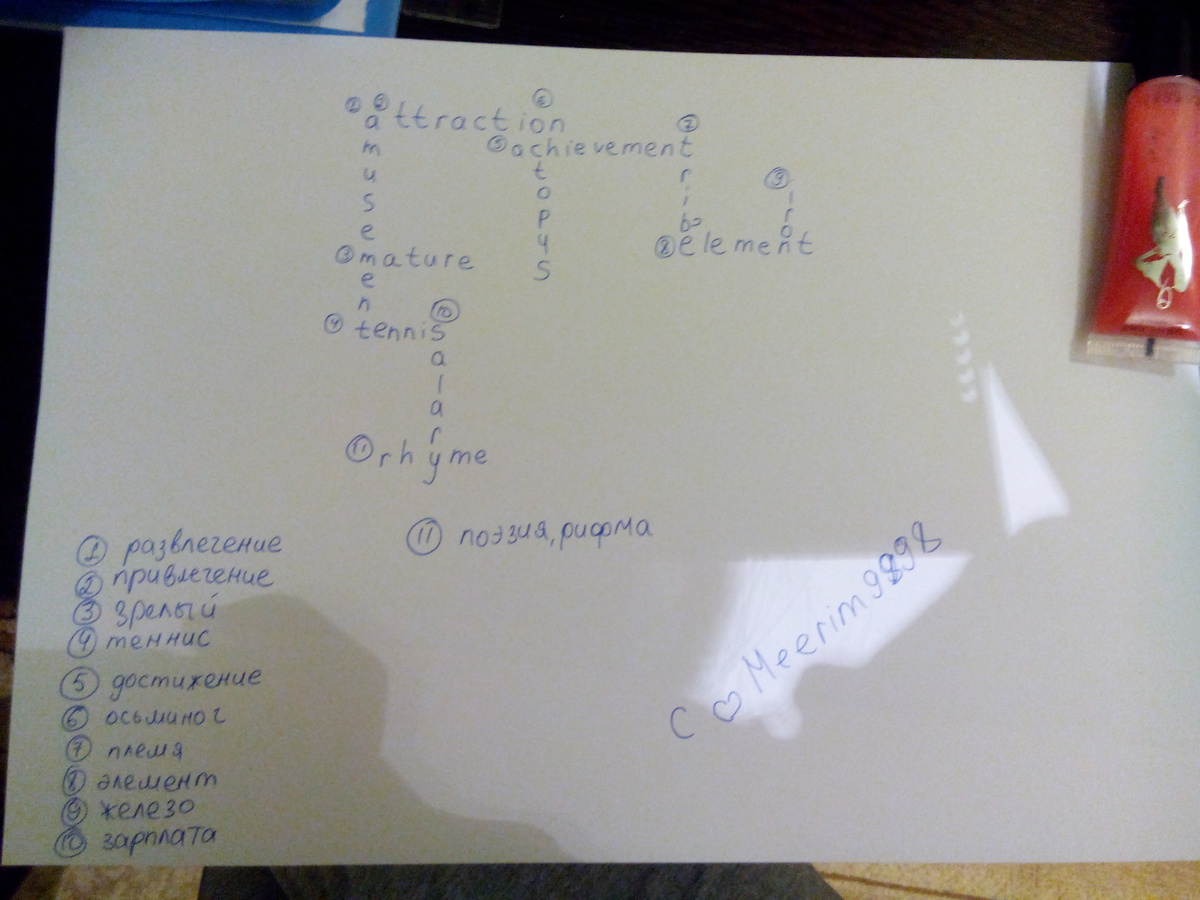 ① ② attraction ⑥
m ⑤ achievement ⑦
u t r ⑨ i
s o i r
e p b o
③ mature y ⑧ element
e s
n ⑩
④ tennis
a
l
a
r
⑪ rhyme
① развлечение
② привлечение
③ зрелый
④ теннис
⑤ достижение
⑥ осьминог
⑦ племя
⑧ элемент
⑨ железо
⑩ зарплата
⑪ поэзия, рифма
С ♡ Meerim9898